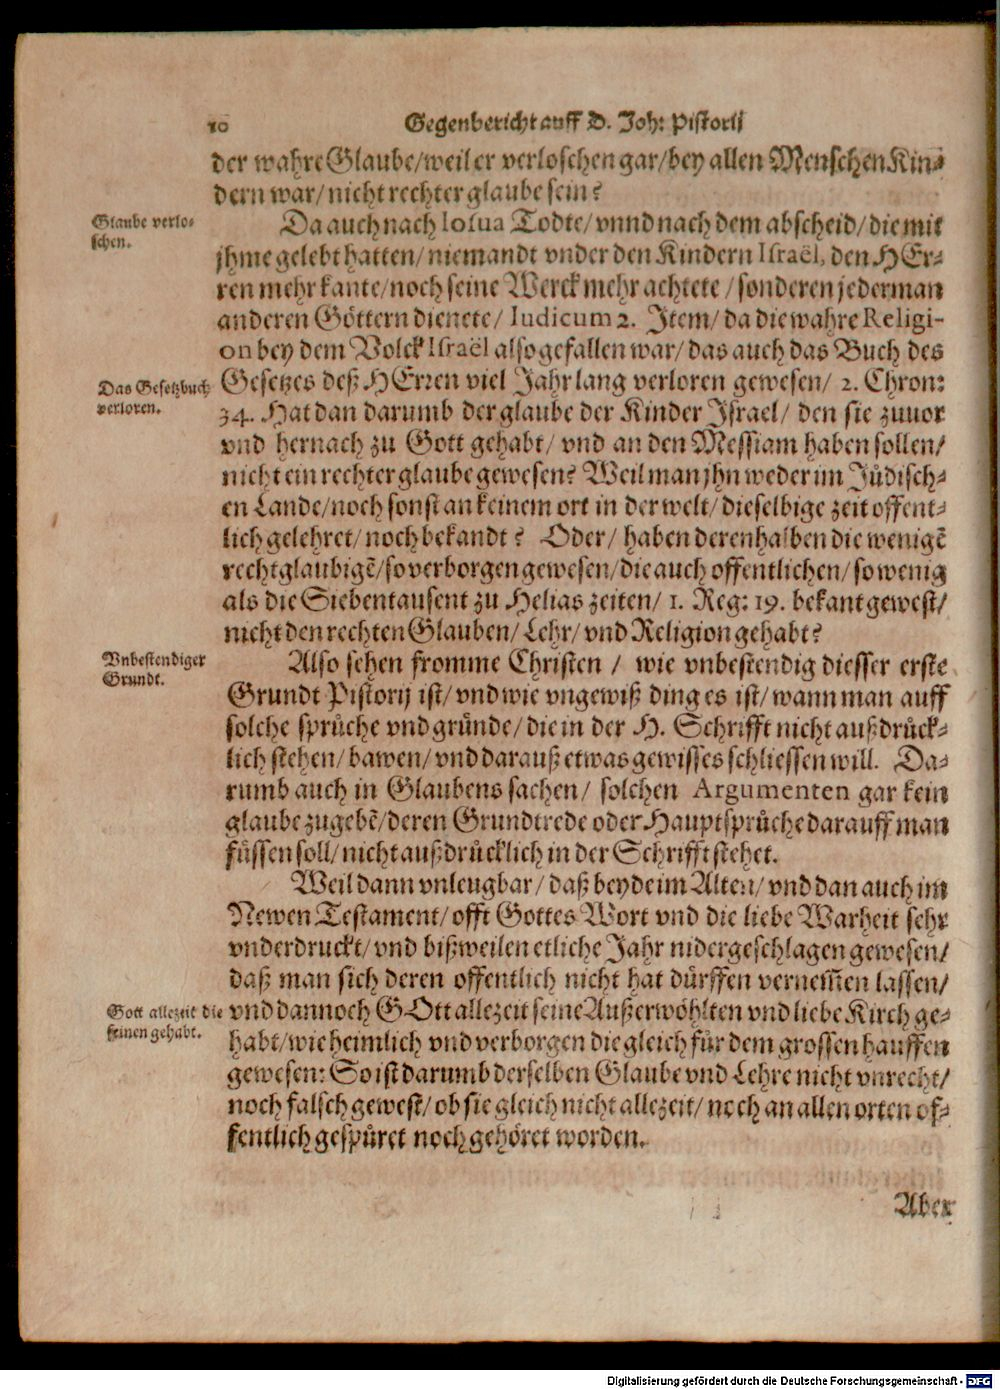 10 Gegenbericht auff D. Joh: Pistorij
der wahre Glaube/weil er verloschen gar/bey allen Menschen Kin⸗
dern war/nicht rechter glaube sein?
Glaube verlo⸗
schen.
Da auch nach Iosua Todte/vnnd nach dem abscheid/die mit
jhme gelebt hatten/niemandt vnder den Kindern Israël, den HEr⸗
ren mehr kante/noch seine Werck mehr achtete/sonderen jederman
anderen Göttern dienete/Iudicum 2. Item/da die wahre Religi-
on bey dem Volck Israël also gefallen war/das auch das Buch des
Das Gesetzbuch
verloren.
Gesetzes deß HErren viel Jahr lang verloren gewesen/2. Chron:
34. Hat dan darumb der glaube der Kinder Israel/den sie zuuor
vnd hernach zu Gott gehabt/vnd an den Messiam haben sollen/
nicht ein rechter glaube gewesen? Weil man jhn weder im Jüdisch⸗
en Lande/noch sonst an keinem ort in der welt/dieselbige zeit offent⸗
lich gelehret/noch bekandt? Oder/haben derenhalben die wenigẽ
rechtglaubigẽ/so verborgen gewesen/die auch offentlichen/so wenig
als die Siebentausent zu Helias zeiten/1. Reg: 19. bekant gewest/
nicht den rechten Glauben/Lehr/vnd Religion gehabt?
Vnbestendiger
Grundt.
Also sehen fromme Christen/wie vnbestendig diesser erste
Grundt Pistorij ist/vnd wie vngewiß ding es ist/wann man auff
solche sprüche vnd gründe/die in der H. Schrifft nicht außdrück⸗
lich stehen/bawen/vnd darauß etwas gewisses schliessen will. Da⸗
rumb auch in Glaubens sachen/solchen Argumenten gar kein
glaube zugebẽ/deren Grundtrede oder Hauptsprüche darauff man
füssen soll/nicht außdrücklich in der Schrifft stehet.
Weil dann vnleugbar/daß beyde im Alten/vnd dan auch im
Newen Testament/offt Gottes Wort vnd die liebe Warheit sehr
vnderdruckt/vnd bißweilen etliche Jahr nidergeschlagen gewesen/
daß man sich deren offentlich nicht hat dürffen vernem̃en lassen/
Gott allezeit die
seinen gehabt.
vnd dannoch GOtt allezeit seine Außerwöhlten vnd liebe Kirch ge⸗
habt/wie heimlich vnd verborgen die gleich für dem grossen hauffen
gewesen: So ist darumb derselben Glaube vnd Lehre nicht vnrecht/
noch falsch gewest/ob sie gleich nicht allezeit/noch an allen orten of⸗
fentlich gespüret noch gehöret worden.
Aber
Digitalisierung gefördert durch die Deutsche Forschungsgemeinschaft - DFG